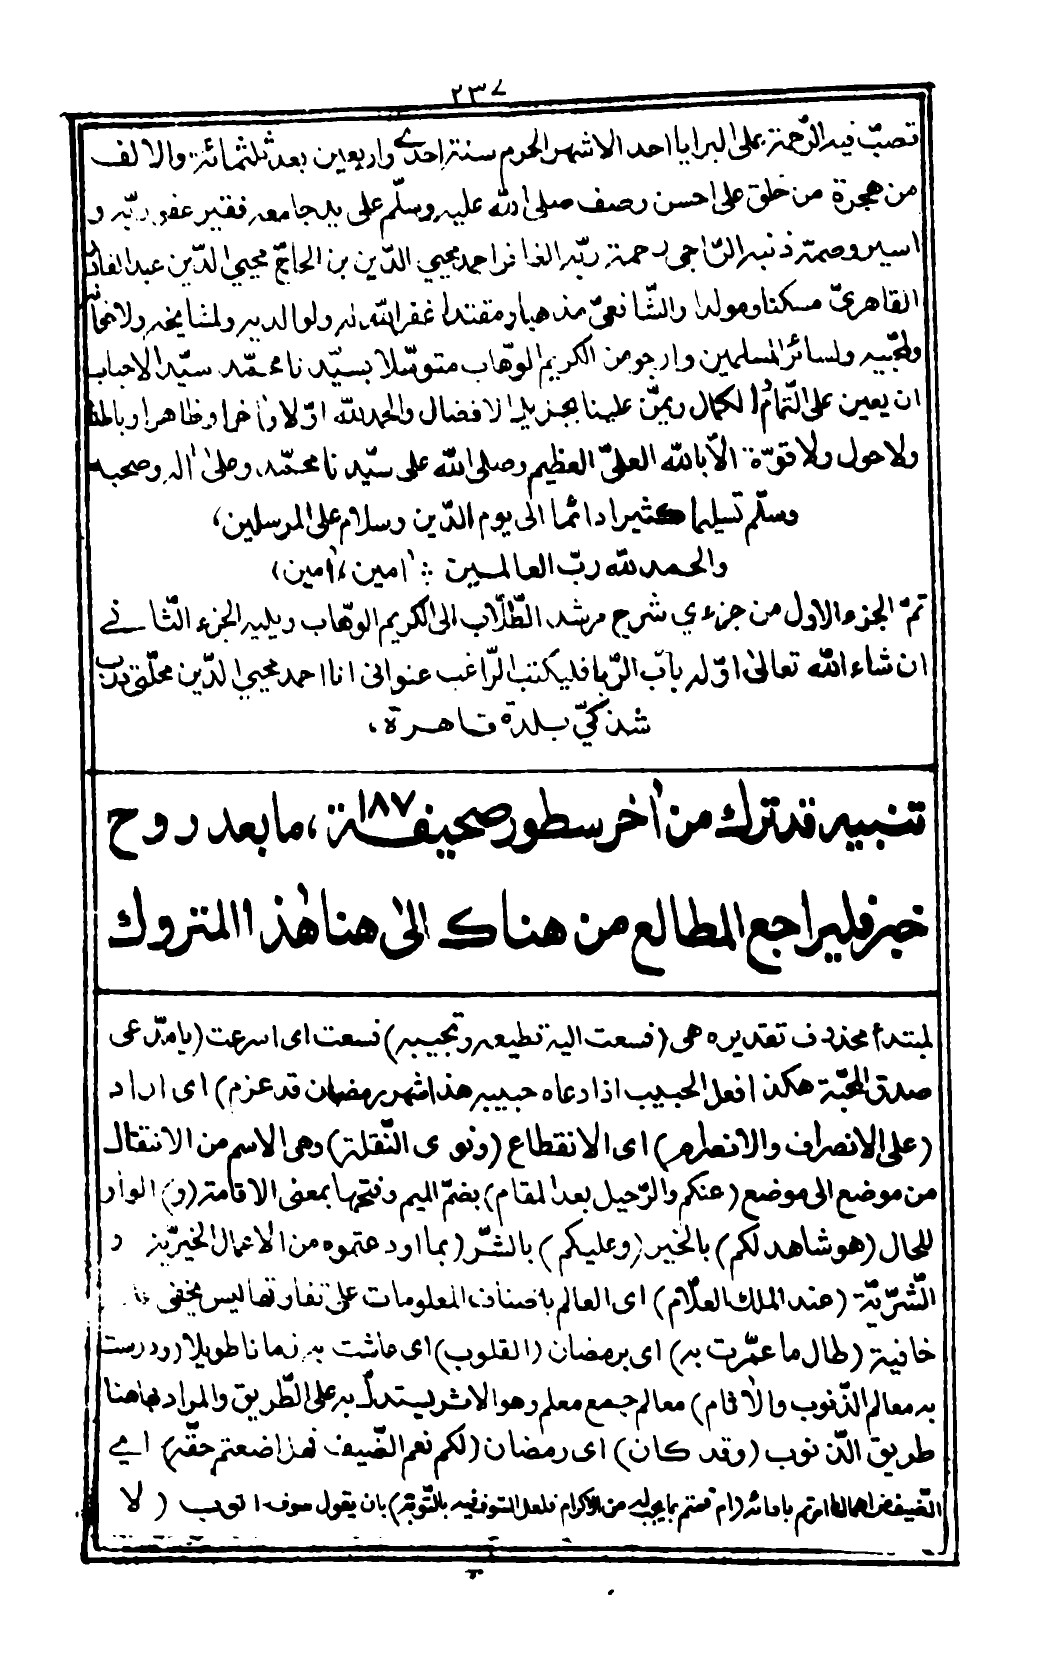 ٢٣٧
تصبّ فيه الرّحمة على البرايا احد الاشهر الحرم سنة احدى واربعين بعد ثلثمائة والالف
من هجرة من خلق على احسن وصف صلى الله عليه وسلّم على يد جامعه فقير عفو ربّه و
اسير وصمة ذنبه الرّاجى رحمة ربّه الغافر احمد محيي الدّين بن الحاجّ محيي الدّين عبد القادر
القاهرىّ مسكنا ومولدا والشّافعىّ مذهبا ومقتدا غفر الله له ولوالديه ولمشايخه ولاخوانه
ولمحبّيه ولسائر المسلمين وارجو من الكريم الوهّاب متوسّلا بسيّدنا محمّد سيّد الاحباب
ان يعين على التّمام والكمال ويمنّ علينا بجزيل الافضال والحمد لله اوّلا واٰخرا وظاهرا وباطنا
ولا حول ولا قوّة الّا بالله العلىّ العظيم وصلى الله على سيّدنا محمّد وعلىٰ اٰله وصحبه
وسلّم تسليما كثيرا دائما الى يوم الدّين وسلام على المرسلين،
والحمد لله ربّ العالمين ؞ اٰمين، اٰمين)
تمّ الجزء الاول من جزءي شرح مرشد الطّلّاب الى الكريم الوهّاب ويليه الجزء الثّاني
ان شاء الله تعالىٰ اوّله باب الرّبا فليكتب الرّاغب عنوانى انا احمد محيي الدّين محلّتى
بلدة قاهرة،
تنبيه قد ترك من اٰخر سطور صحيفة ١٨٧، ما بعد روح
خبر فليراجع المطالع من هناك الىٰ هنا هٰذا المتروك
لمبتدأ محذوف تقديره هى (فسعت اليه تطيعه وتجيبه) فسعت اى اسرعت (يا مدّعى
صدق المحبّة هكذا فعل الحبيب اذا دعاه حبيبه هذا شهر رمضان قد عزم) اى اراد
(على الانصراف والانصرام) اى الانقطاع (ونوى النّقلة) وهى الاسم من الانتقال
من موضع الى موضع (عنكم والرّحيل بعد المقام) بضمّ الميم وفتحها بمعنى الاقامة (و) الواو
للحال (هو شاهد لكم) بالخير (وعليكم) بالشّرّ (بما اودعتموه من الاعمال الخيريّة و
الشّرّيّة (عند الملك العلّام) اى العالم باصناف المعلومات على تفاوتها ليس يخفى
خافية (طال ما عمّرت به) اى برمضان (القلوب) اى عاشت به زمانا طويلا (ودرست
به معالم الذّنوب والاٰثام) معالم جمع معلم وهو الاثر يستدلّ به على الطّريق والمراد هاهنا
طريق الذّنوب (وقد كان) اى رمضان (لكم نعم الضّيف فهل اضعتم حقّه) اي
الضّيف (ام قمتم بما يجب له من الاكرام فلعل التوفية بالتّوبة) بان يقول سوف اتوب (لا